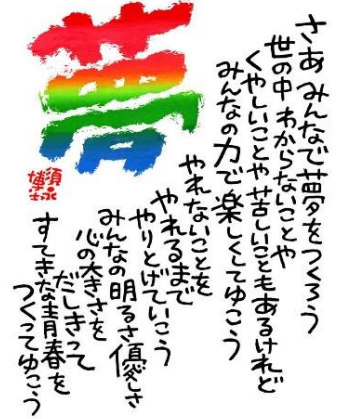 夢
さあ みんなで夢をつくろう
世の中 わからないことや
くやしいことや苦しいこともあるけれど
みんなの力で楽しくしてゆこう
やれないことを
やれるまで
やりとげていこう
みんなの明るさ優しさ
心の大きさを
だしきって
すてきな青春を
つくってゆこう
須永博士